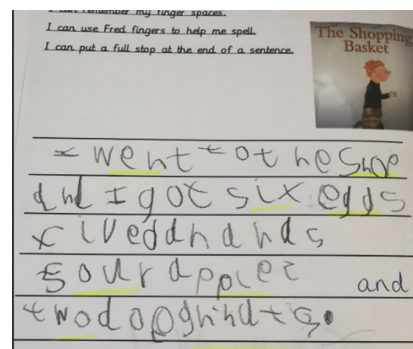 I can remember my finger spaces.
I can use Fred fingers to help me spell.
I can put a full stop at the end of a sentence.
The Shopping
Basket
I went to the Shop
and I got six eggs
five
four apples and
two